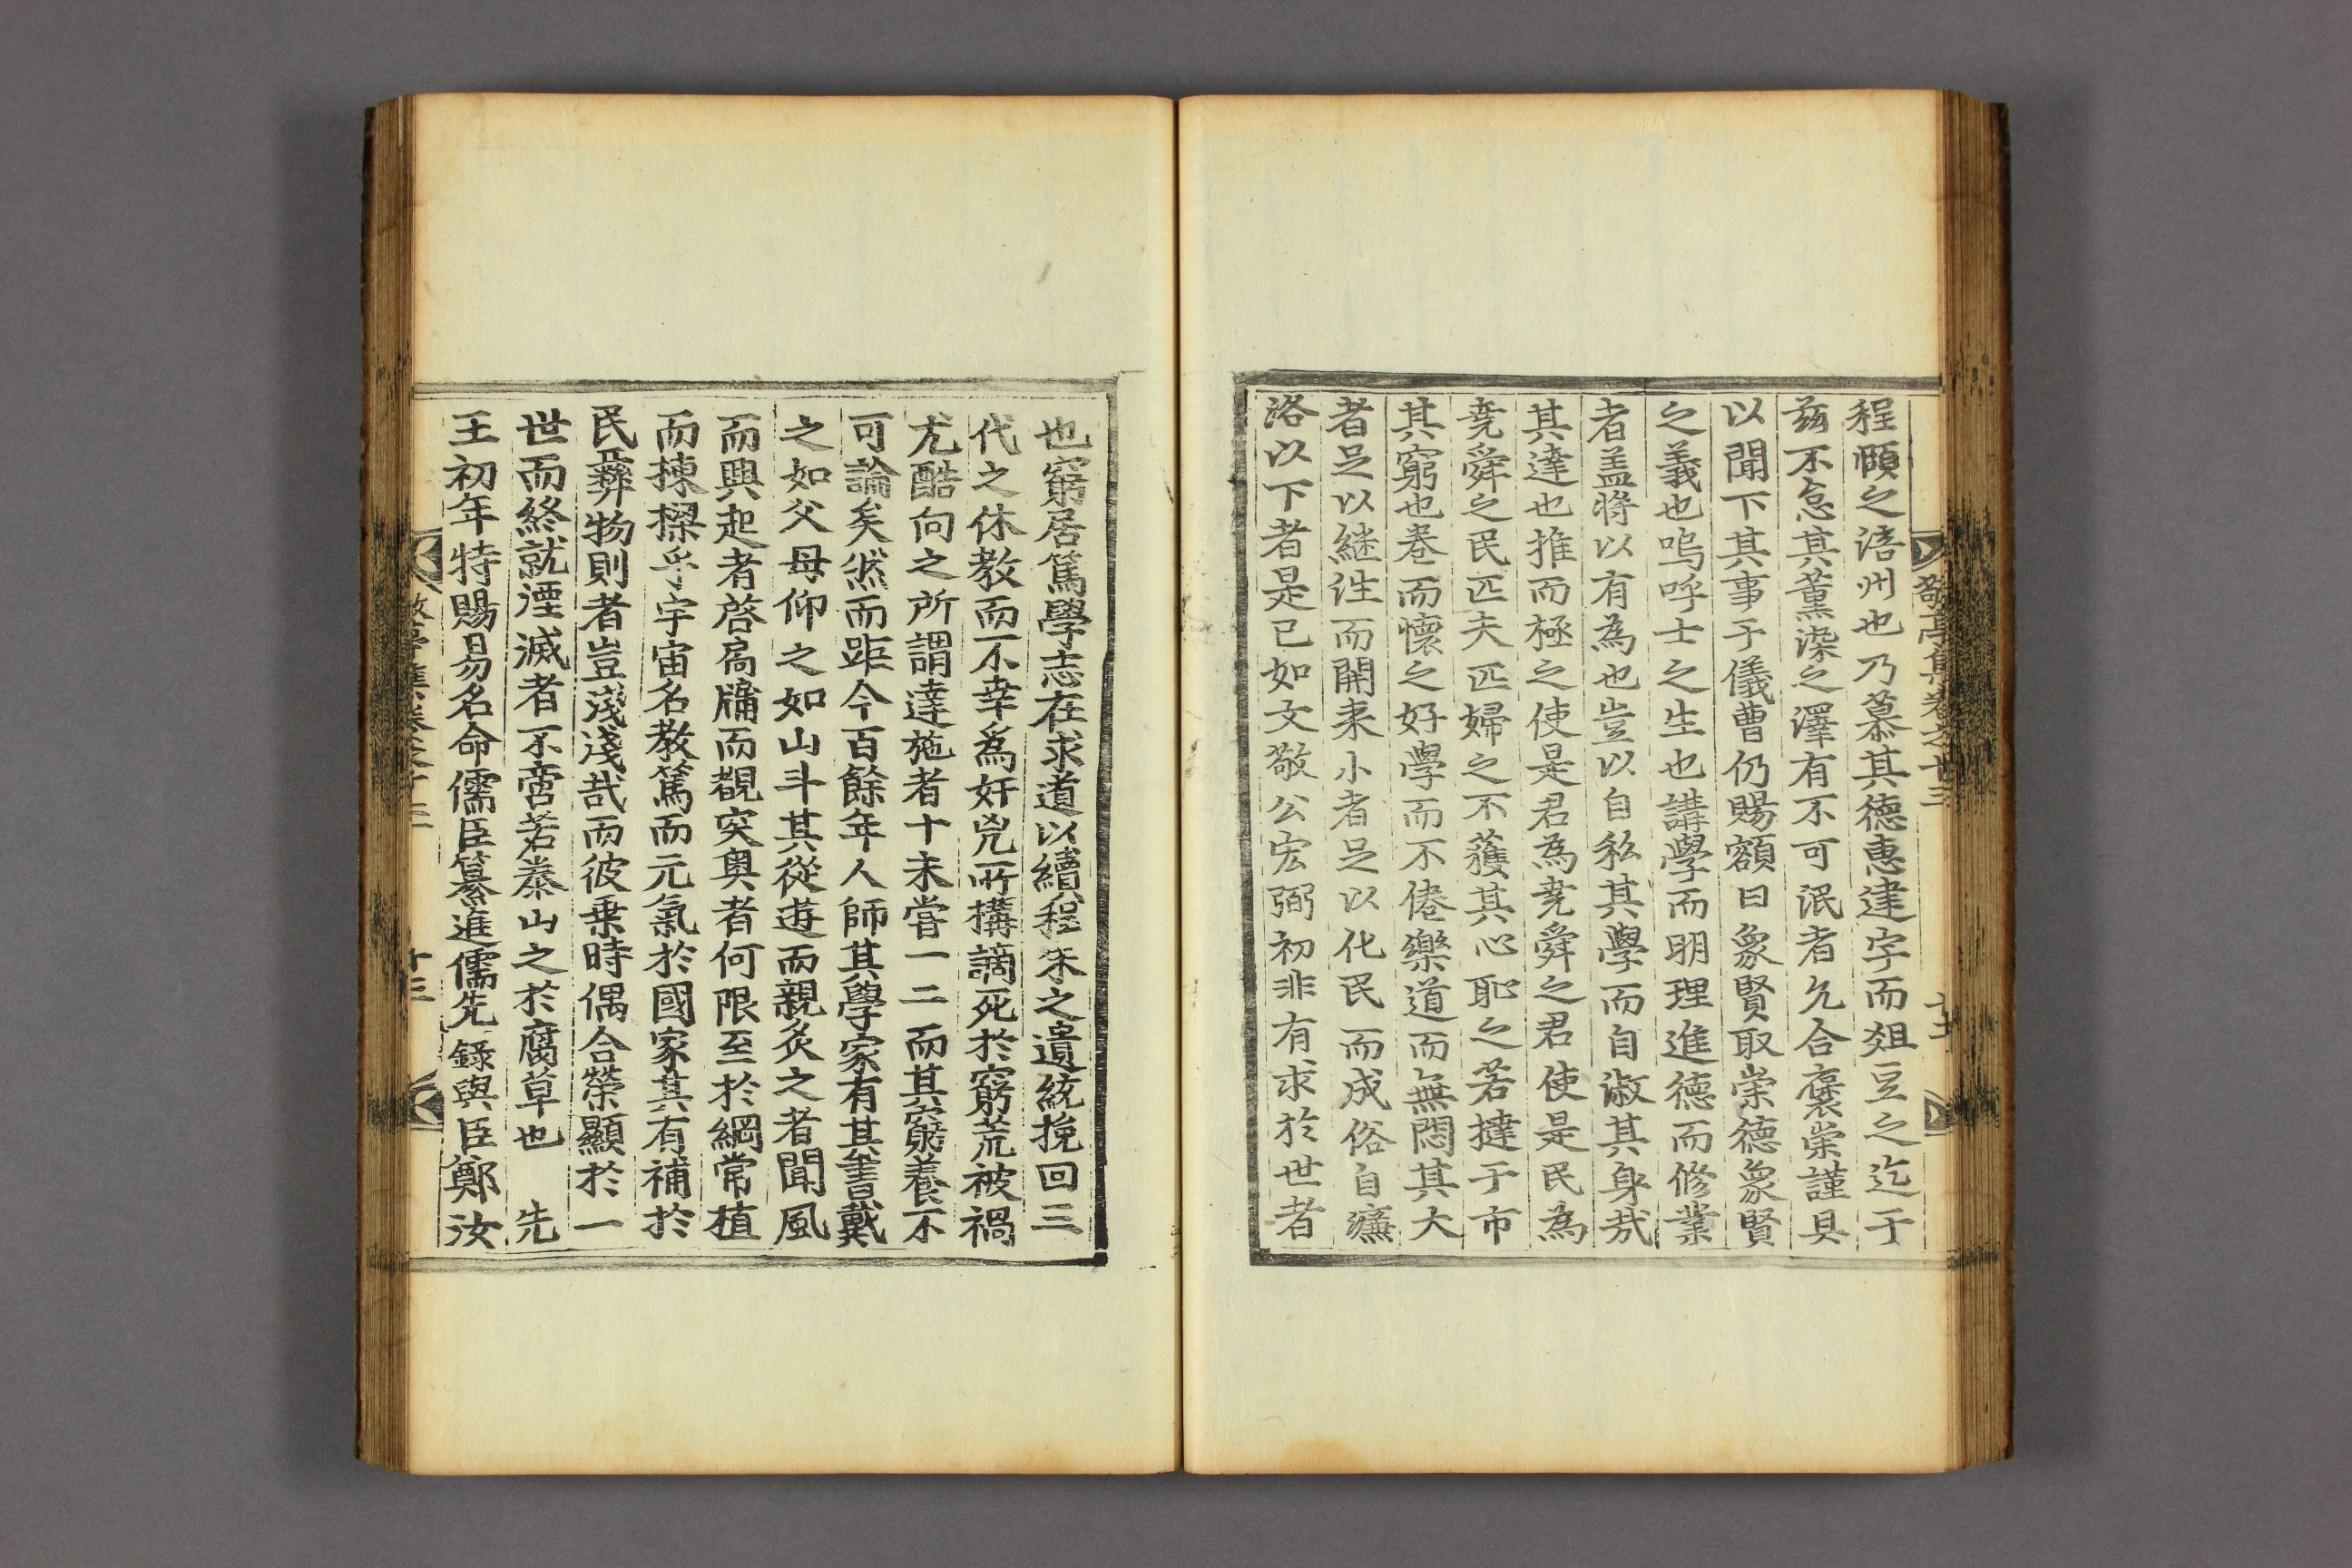 程頤之涪州也乃慕其德惠建宇而爼豆之迄于
玆不怠其薰染之澤有不可泯者允合褒崇謹具
以聞下其事于儀曹仍賜額曰象賢取崇德象賢
之義也嗚呼士之生也講學而明理進德而修業
者盖將以有為也豈以自私其學而自淑其身㢤
其達也推而極之使是君為堯舜之君使是民為
堯舜之民匹夫匹婦之不獲其心耻之若撻于市
其窮也卷而懷之好學而不倦樂道而無悶其大
者足以継徃而開来小者足以化民而成俗自濂
洛以下者是已如文敬公宏弼初非有求於世者
敬亭集卷之十三
也窮居篤學志在求道以續程朱之遺統挽回三
代之休教而不幸為奸兇所搆謫死於窮荒被禍
尤酷向之所謂達施者十未嘗一二而其窮養不
可論矣然而距今百餘年人師其學家有其書戴
之如父母仰之如山斗其從遊而親炙之者聞風
而興起者啓扃牖而覩突奥者何限至於綱常植
而揀樑乎宇宙名教篤而元氣於國家其有補於
民彝物則者豈淺淺哉而彼乗時偶合榮顯於一
世而終就湮滅者不啻若泰山之於腐草也 先
王初年特賜易名命儒臣纂進儒先錄與臣鄭汝
敬亭集卷之十三 十三